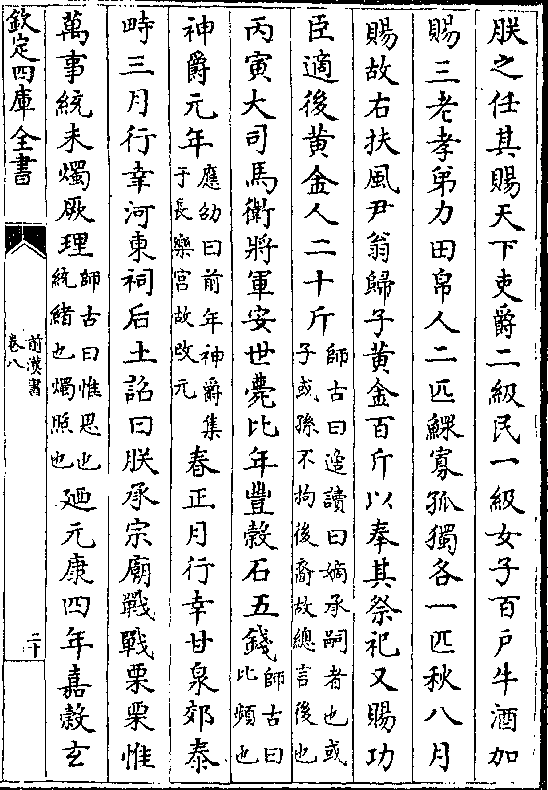 朕之任其賜天下吏爵二級民一級女子百戶牛酒加
賜三老孝弟力田帛人二匹鰥寡孤獨各一匹秋八月
賜故右扶風尹翁歸子黃金百斤以奉其祭祀又賜功
臣適後黃金人二十斤師古曰適讀曰嫡承嗣者也或
子或孫不拘後裔故總言後也
丙寅大司馬衛將軍安世薨比年豐穀石五錢師古曰
比頻也
神爵元年應劭曰前年神爵集
于長樂宮故改元春正月行幸甘泉郊泰
畤三月行幸河東祠后土詔曰朕承宗廟戰戰栗栗惟
萬事統未燭厥理師古曰惟思也
統緒也燭照也廼元康四年嘉穀玄
欽定四庫全書
前漢書
卷八
二十